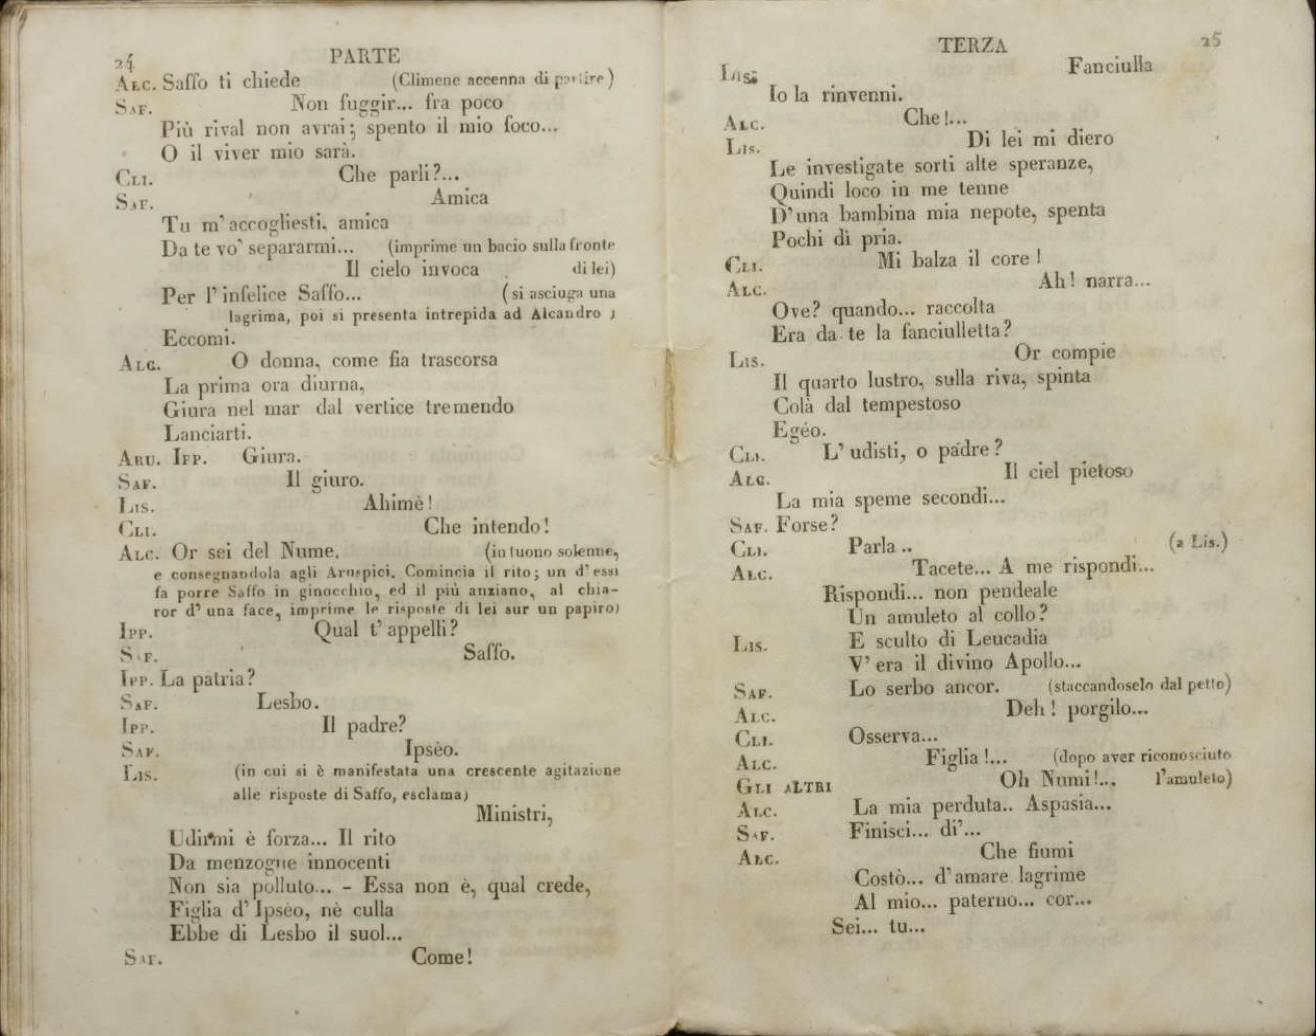 24 PARTE
ALC. Saffo ti chiede (Climene accenna di partire)
SAF. Non fuggir... fra poco
Più rival non avrai; spento il mio foco...
O il viver mio sarà.
CLI. Che parli?...
SAF. Amica
Tu m'accogliesti, amica
Da te vo' separarmi... (imprime un bacio sulla fronte
Il cielo invoca di lei)
Per l'infelice Saffo... (si asciuga una
lagrima, poi si presenta intrepida ad Alcandro)
Eccomi.
ALC. O donna, come fia trascorsa
La prima ora diurna,
Giura nel mar dal vertice tremendo
Lanciarti.
ARU. IPP. Giura.
SAF. Il giuro.
LIS. Ahimè!
CLI. Che intendo!
ALC. Or sei del Nume. (in tuono solenne,
e consegnandola agli Aruspici. Comincia il rito; un d'essi
fa porre Saffo in ginocchio, ed il più anziano, al chia-
ror d'una face, imprime le risposte di lei sur un papiro)
IPP. Qual t'appelli?
SAF. Saffo.
IPP. La patria?
SAF. Lesbo.
IPP. Il padre?
SAF. Ipsèo.
LIS. (in cui si è manifestata una crescente agitazione
alle risposte di Saffo, esclama)
Ministri,
Udirmi è forza... Il rito
Da menzogne innocenti
Non sia polluto... - Essa non è, qual crede,
Figlia d'Ipsèo, nè culla
Ebbe di Lesbo il suol...
SAF. Come!
TERZA 25
LIS. Fanciulla
Io la rinvenni.
ALC. Che!...
LIS. Di lei mi diero
Le investigate sorti alte speranze,
Quindi loco in me tenne
D'una bambina mia nepote, spenta
Pochi dì pria.
CLI. Mi balza il core!
ALC. Ah! narra...
Ove? quando... raccolta
Era da te la fanciulletta?
LIS. Or compie
Il quarto lustro, sulla riva, spinta
Colà dal tempestoso
Egéo.
CLI. L'udisti, o padre?
ALC. Il ciel pietoso
La mia speme secondi...
SAF. Forse?
CLI. Parla.. (a Lis.)
ALC. Tacete... A me rispondi...
Rispondi... non pendeale
Un amuleto al collo?
LIS. E sculto di Leucadia
V'era il divino Apollo...
SAF. Lo serbo ancor. (staccandoselo dal petto)
ALC. Deh! porgilo...
CLI. Osserva...
ALC. Figlia!... (dopo aver riconosciuto
GLI ALTRI Oh Numi!... l'amuleto)
ALC. La mia perduta.. Aspasia...
SAF. Finisci... di'...
ALC. Che fiumi
Costò... d'amare lagrime
Al mio... paterno... cor...
Sei... tu...